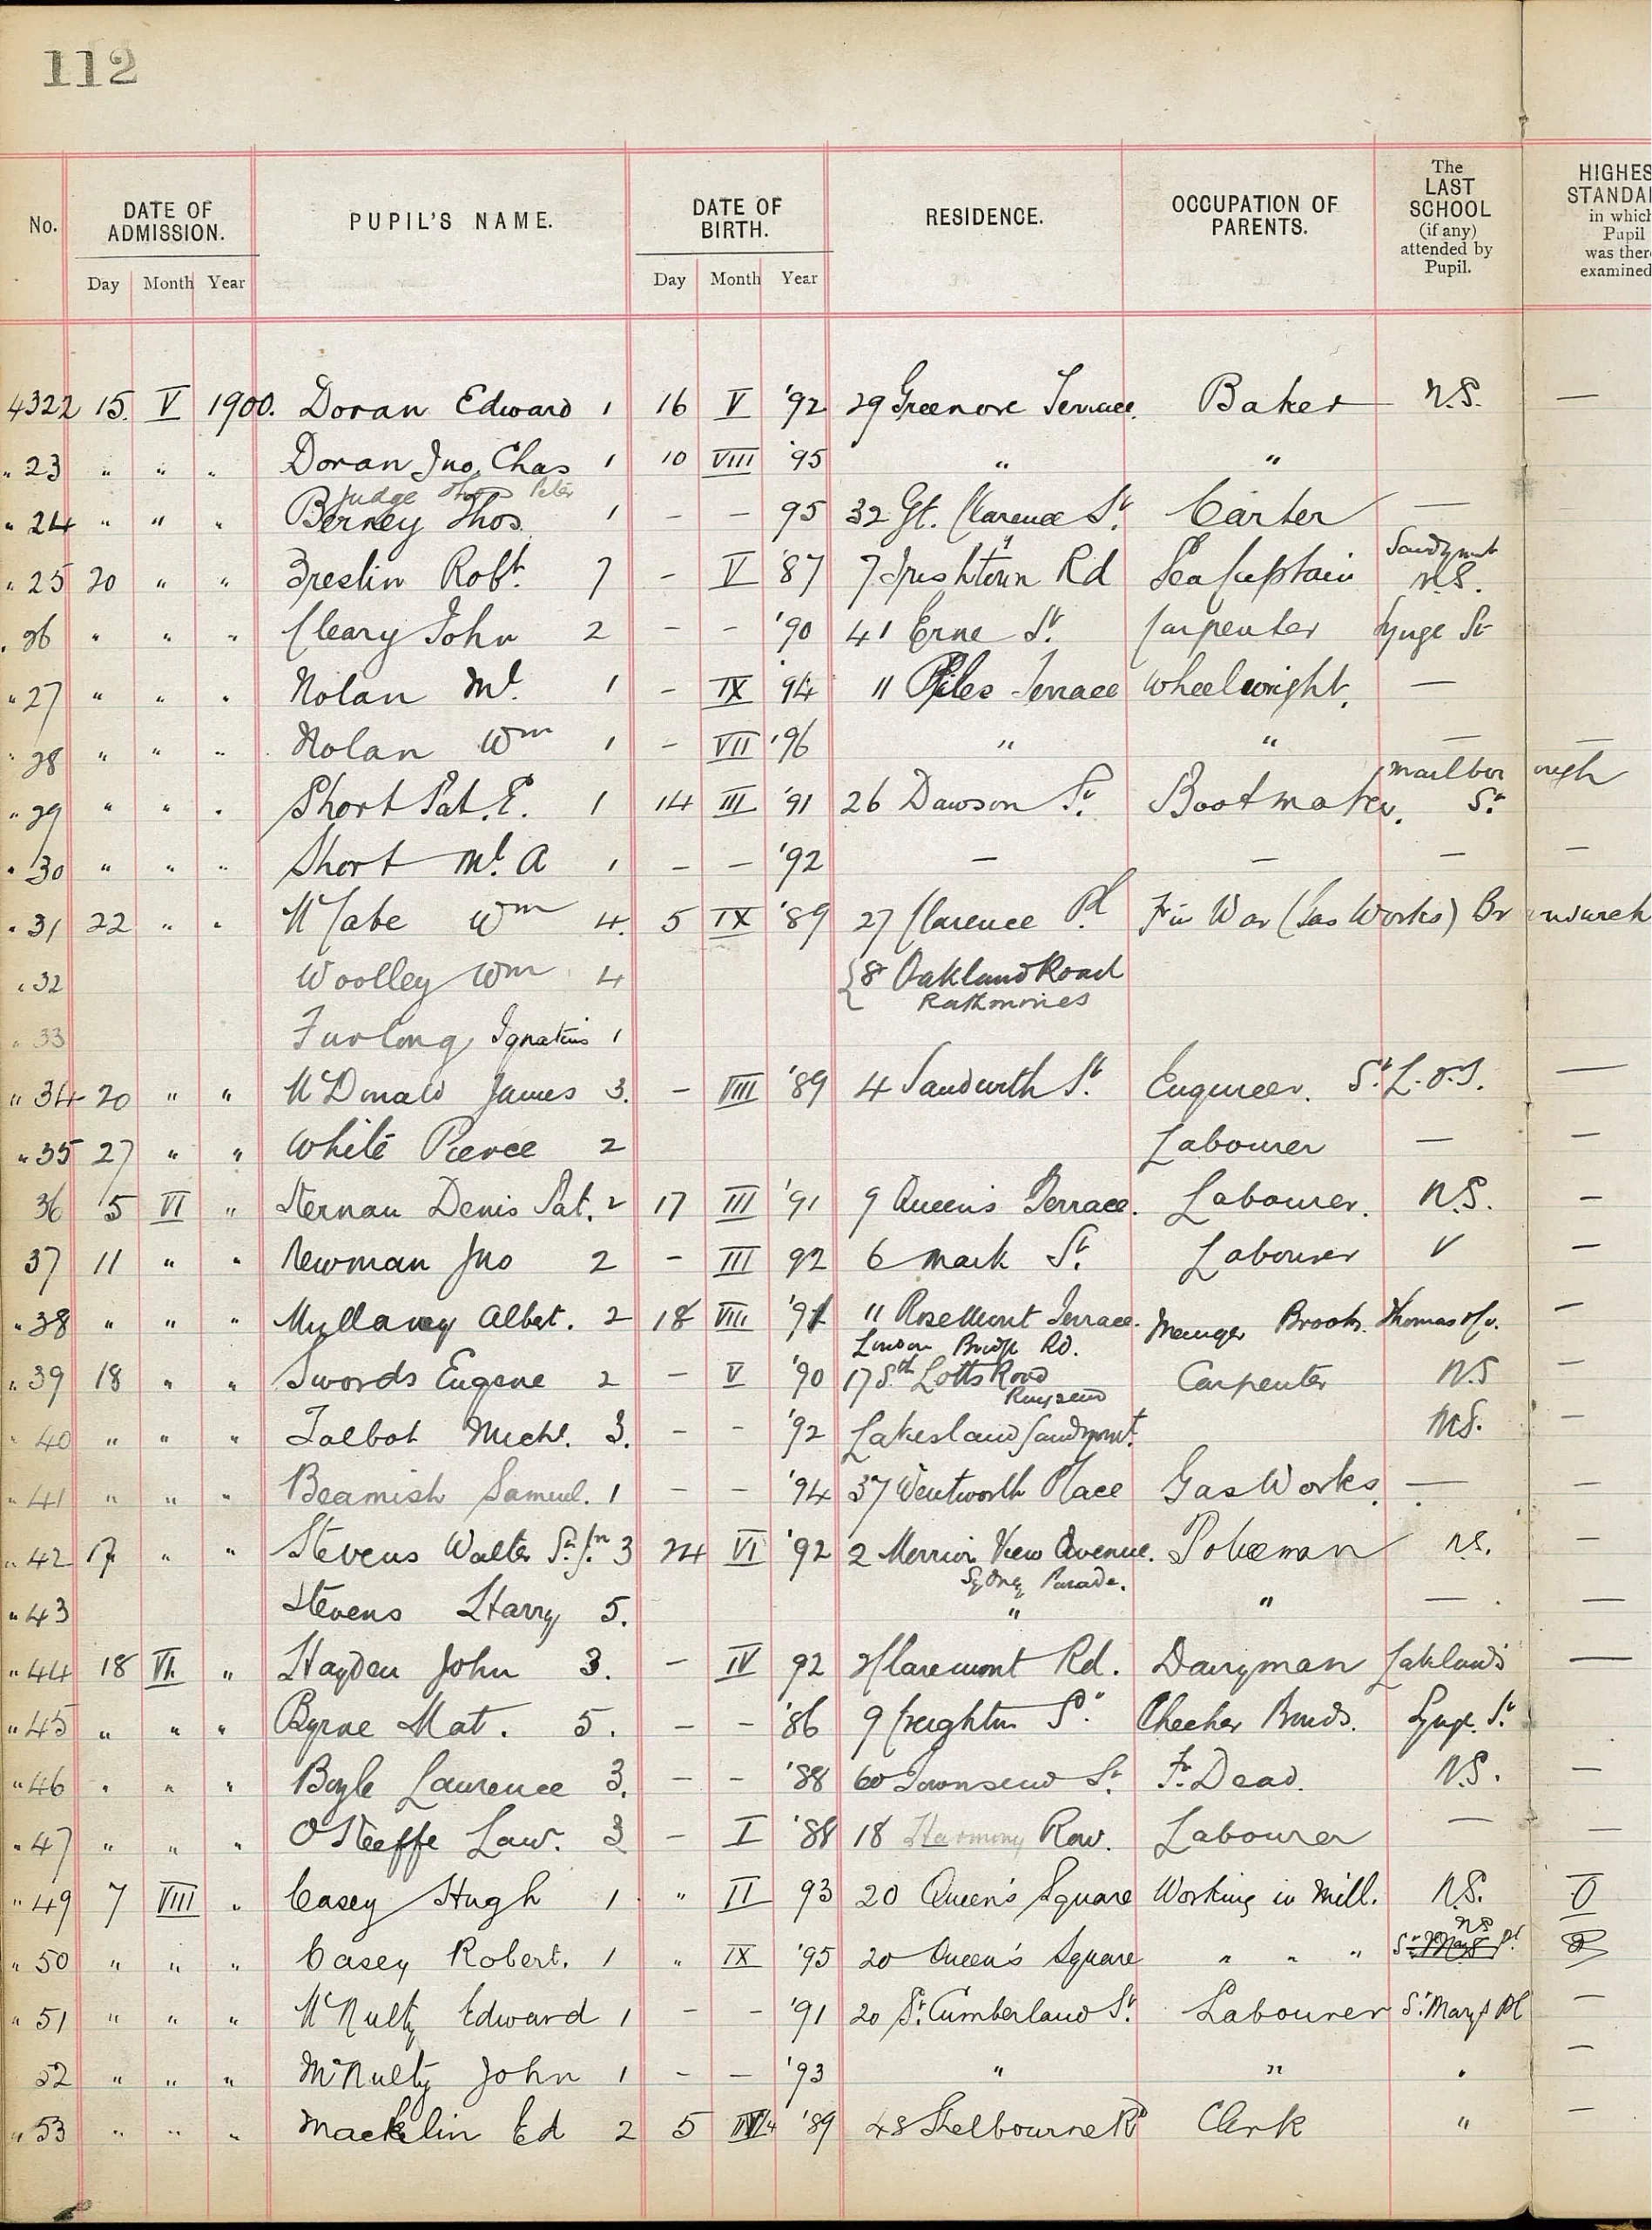 112
No. DATE OF ADMISSION. PUPIL'S NAME. DATE OF BIRTH. RESIDENCE. OCCUPATION OF PARENTS. The LAST SCHOOL (if any) attended by Pupil. HIGHES STANDA in which Pupil was ther examined
Day Month Year Day Month Year
4322 15. V 1900. Doran Edward 1 16 V '92 29 Greenore Terrace. Baker N.S. —
" 23 " " " Doran Jno. Chas 1 10 VIII '95 " "
Judge Thos Peter
" 24 " " " Berney Thos. 1 — — 95 32 Gt. Clarence St. Carter —
" 25 20 " " Breslin Robt. 7 – V '87 7 Irishtown Rd Sea Captain Sandymt N.S.
" 26 " " " Cleary John 2 – – '90 41 Erne St. Carpenter Synge St
" 27 " " " Nolan Ml. 1 – IX '94 11 Piles Terrace Wheelwright. —
" 28 " " " Nolan Wm 1 – VII '96 " " — —
" 29 " " " Short Pat. E. 1 14 III '91 26 Dawson St. Bootmaker. Marlborough St.
" 30 " " " Short Ml. A 1 – – '92 — — — —
" 31 22 " " McCabe Wm 4. 5 IX '89 27 Clarence Pl (Gas Works)
" 32 Woolley Wm 4 {8 Oakland Road
Rathmines
" 33 Furlong Ignatius 1
" 34 20 " " McDonald James 3. – VIII '89 4 Sandwith St. Engineer. St. L. O'T. —
" 35 27 " " White Pierce 2 Labourer — —
36 5 VI " Kernan Denis Pat. 2 17 III '91 9 Queen's Terrace. Labourer. N.S. —
37 11 " " Newman Jno 2 – III 92 6 Mark St. Labourer —
" 38 " " " Mullaney Albert. 2 18 VIII '91 11 Rosemount Terrace. Manager Brooks. Thomas —
London Bridge Rd.
" 39 18 " " Swords Eugene 2 – V '90 17 Sth Lotts Road Carpenter N.S —
Ringsend
" 40 " " " Talbot Michl. 3. – – '92 Lakeland Sandymt. N.S. —
" 41 " " " Beamish Samuel. 1 – – '94 37 Wentworth Place Gas Works. — —
" 42 " " Stevens Walter 3 24 VI '92 2 Merrion View Avenue. Policeman N.S. —
Sydney Parade.
" 43 Stevens Harry 5. " " — —
" 44 18 VI. " Hayden John 3. – IV 92 Claremont Rd. Dairyman Lakelands —
" 45 " " " Byrne Mat. 5. – – '86 9 Creighton St. Checker Bonds. Synge St.
" 46 " " " Boyle Laurence 3. – – '88 60 Townsend St. Fr. Dead. N.S. —
" 47 " " " O'Keeffe Law. 3 – I '88 18 Harmony Row. Labourer — —
" 49 7 VIII " Casey Hugh 1 " II 93 20 Queen's Square Working in Mill. N.S. 0
" 50 " " " Casey Robert. 1 " IX '95 20 Queen's Square " " " NS
" 51 " " " McNulty Edward 1 – – '91 20 St. Cumberland St. Labourer St. Mary's Pl —
52 " " " McNulty John 1 – – '93 " " " —
" 53 " " " Macklin Ed 2 5 '89 48 Shelbourne Rd Clerk " —